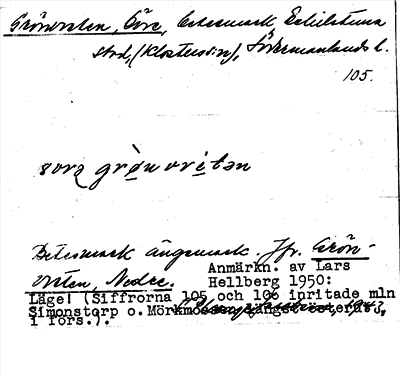 Grönvreten, Övre, betesmark, Eskilstuna
stad, (Klosters sn), Södermanlands l.
105.
sorə grø̀nvritən
Betesmark ängsmark. Jfr. Grön-
vreten, Nedre.
Anmärkn. av Lars
Hellberg 1950:
Läge! (Siffrorna 105 och 106 inritade mln
Simonstorp o.
i förs.).